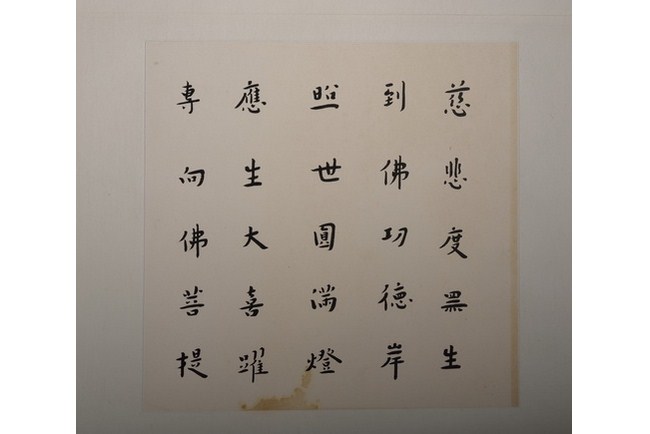 慈悲度眾生
到佛功德岸
照世圓滿燈
應生大喜躍
專向佛菩提